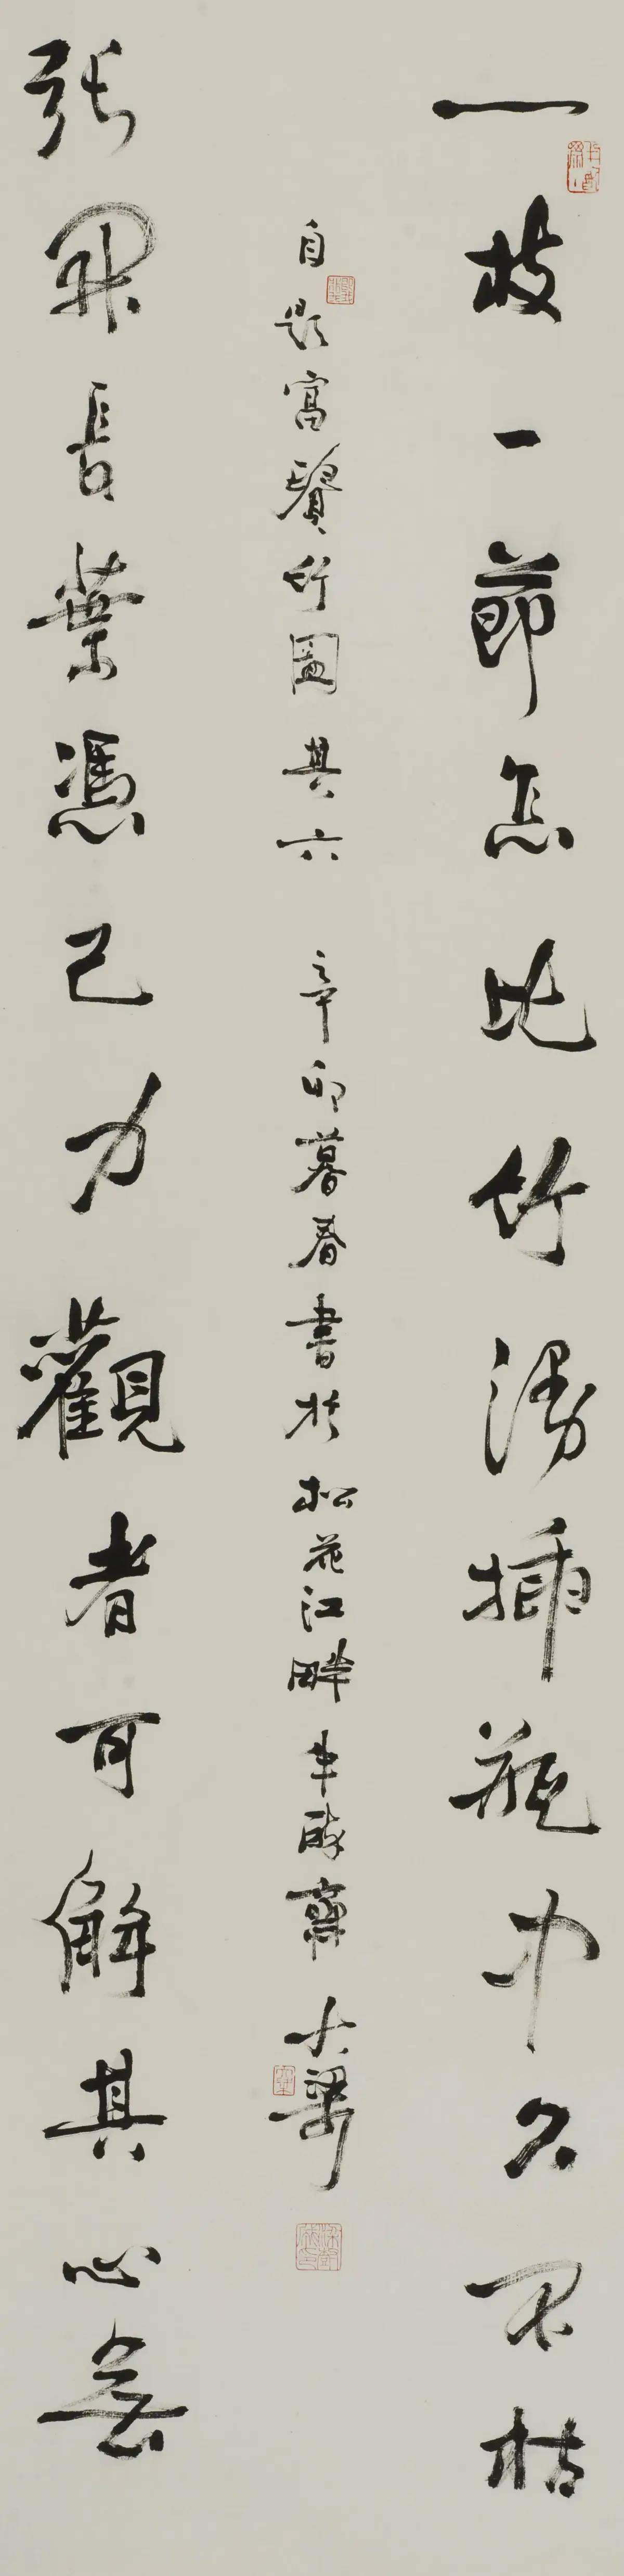 一枝一節怎比竹漫插瓶中久不枯
張開長葉憑己力觀者可解其心無
自題富貴竹圖其六 辛卯暮春書於松花江畔半醉齋 大梁